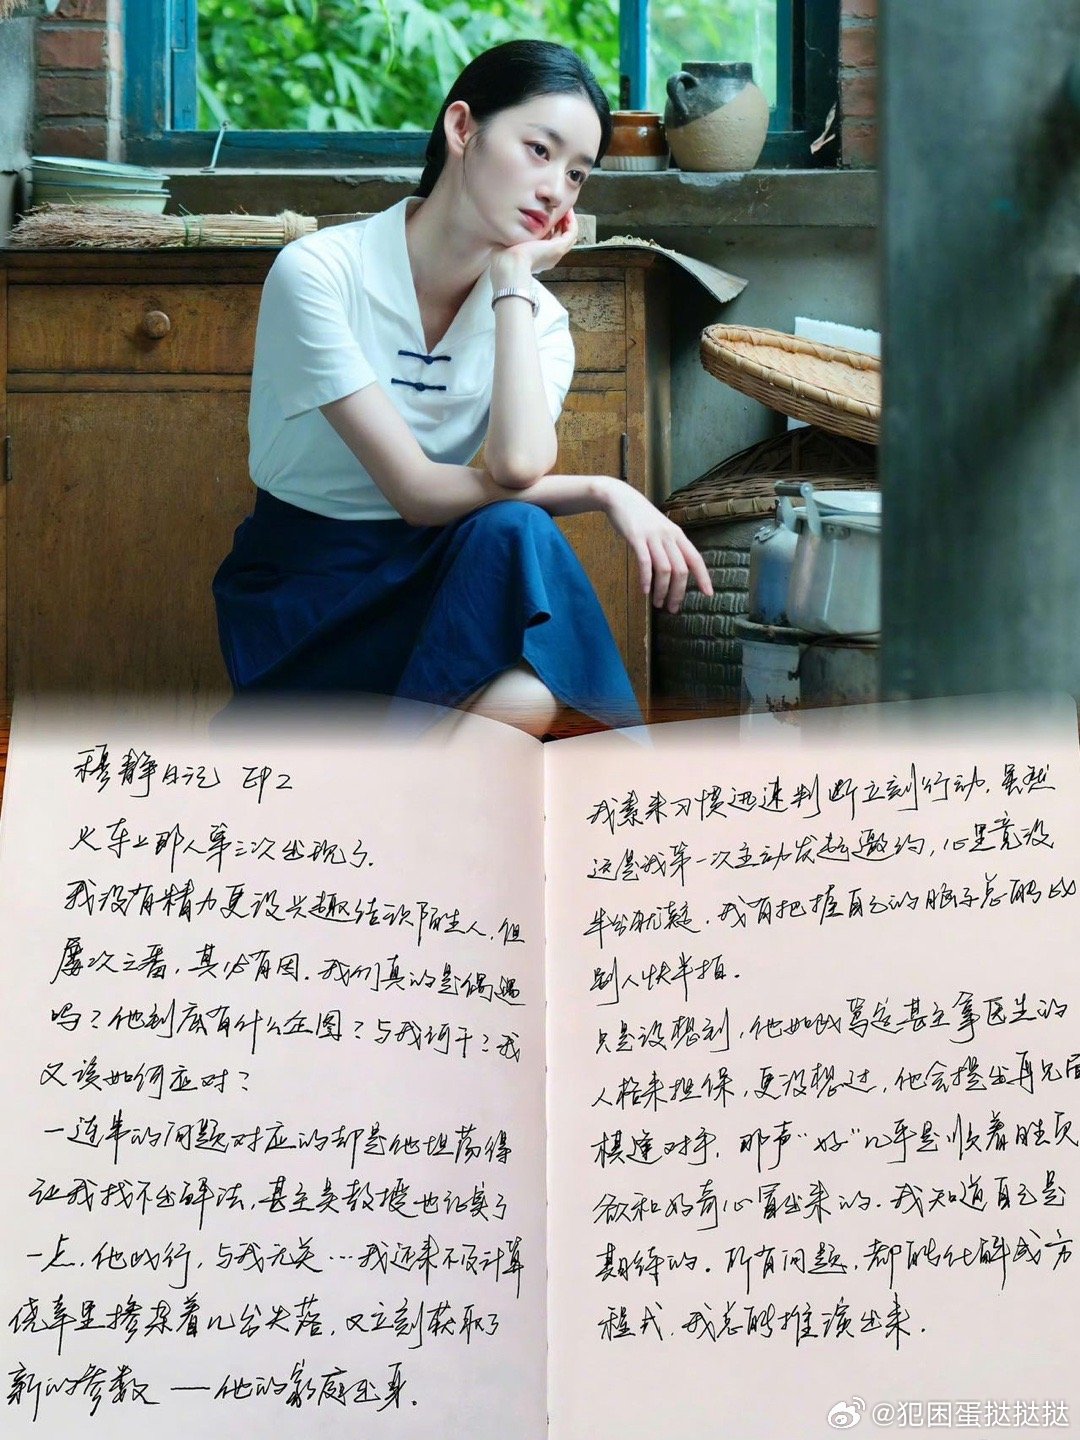 穆静日记 EP2
火车上那人第三次出现了.
我没有精力更没兴趣结识陌生人,但
屡次三番,其必有因.我们真的是偶遇
吗?他到底有什么企图?与我何干?我
又该如何应对?
一连串的问题对应的却是他坦荡得
让我找不出解法,甚至吴教授也证实了
一点.他此行,与我无关…我还来不及计算
侥幸里掺杂着几分失落,又立刻获取了
新的参数 ——他的家庭出身.
我素来习惯迅速判断立刻行动.虽然
这是我第一次主动发起邀约,心里竟没
半分犹疑.我有把握自己的脑子总能比
别人快半拍.
只是没想到,他如此笃定甚至拿医生的
人格来担保,更没想过,他会提出再见面
棋逢对手.那声"好"几乎是顺着胜负
欲和好奇心冒出来的.我知道自己是
期待的.所有问题,都能化解成方
程式.我总能推演出来.
@犯困蛋挞挞挞